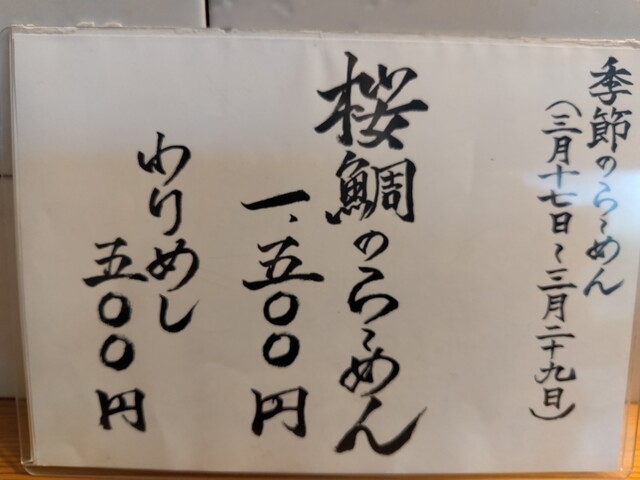 季節のらーめん
(三月十七日~三月二十九日)
桜鯛のらーめん
一、五〇〇円
わりめし
五〇〇円